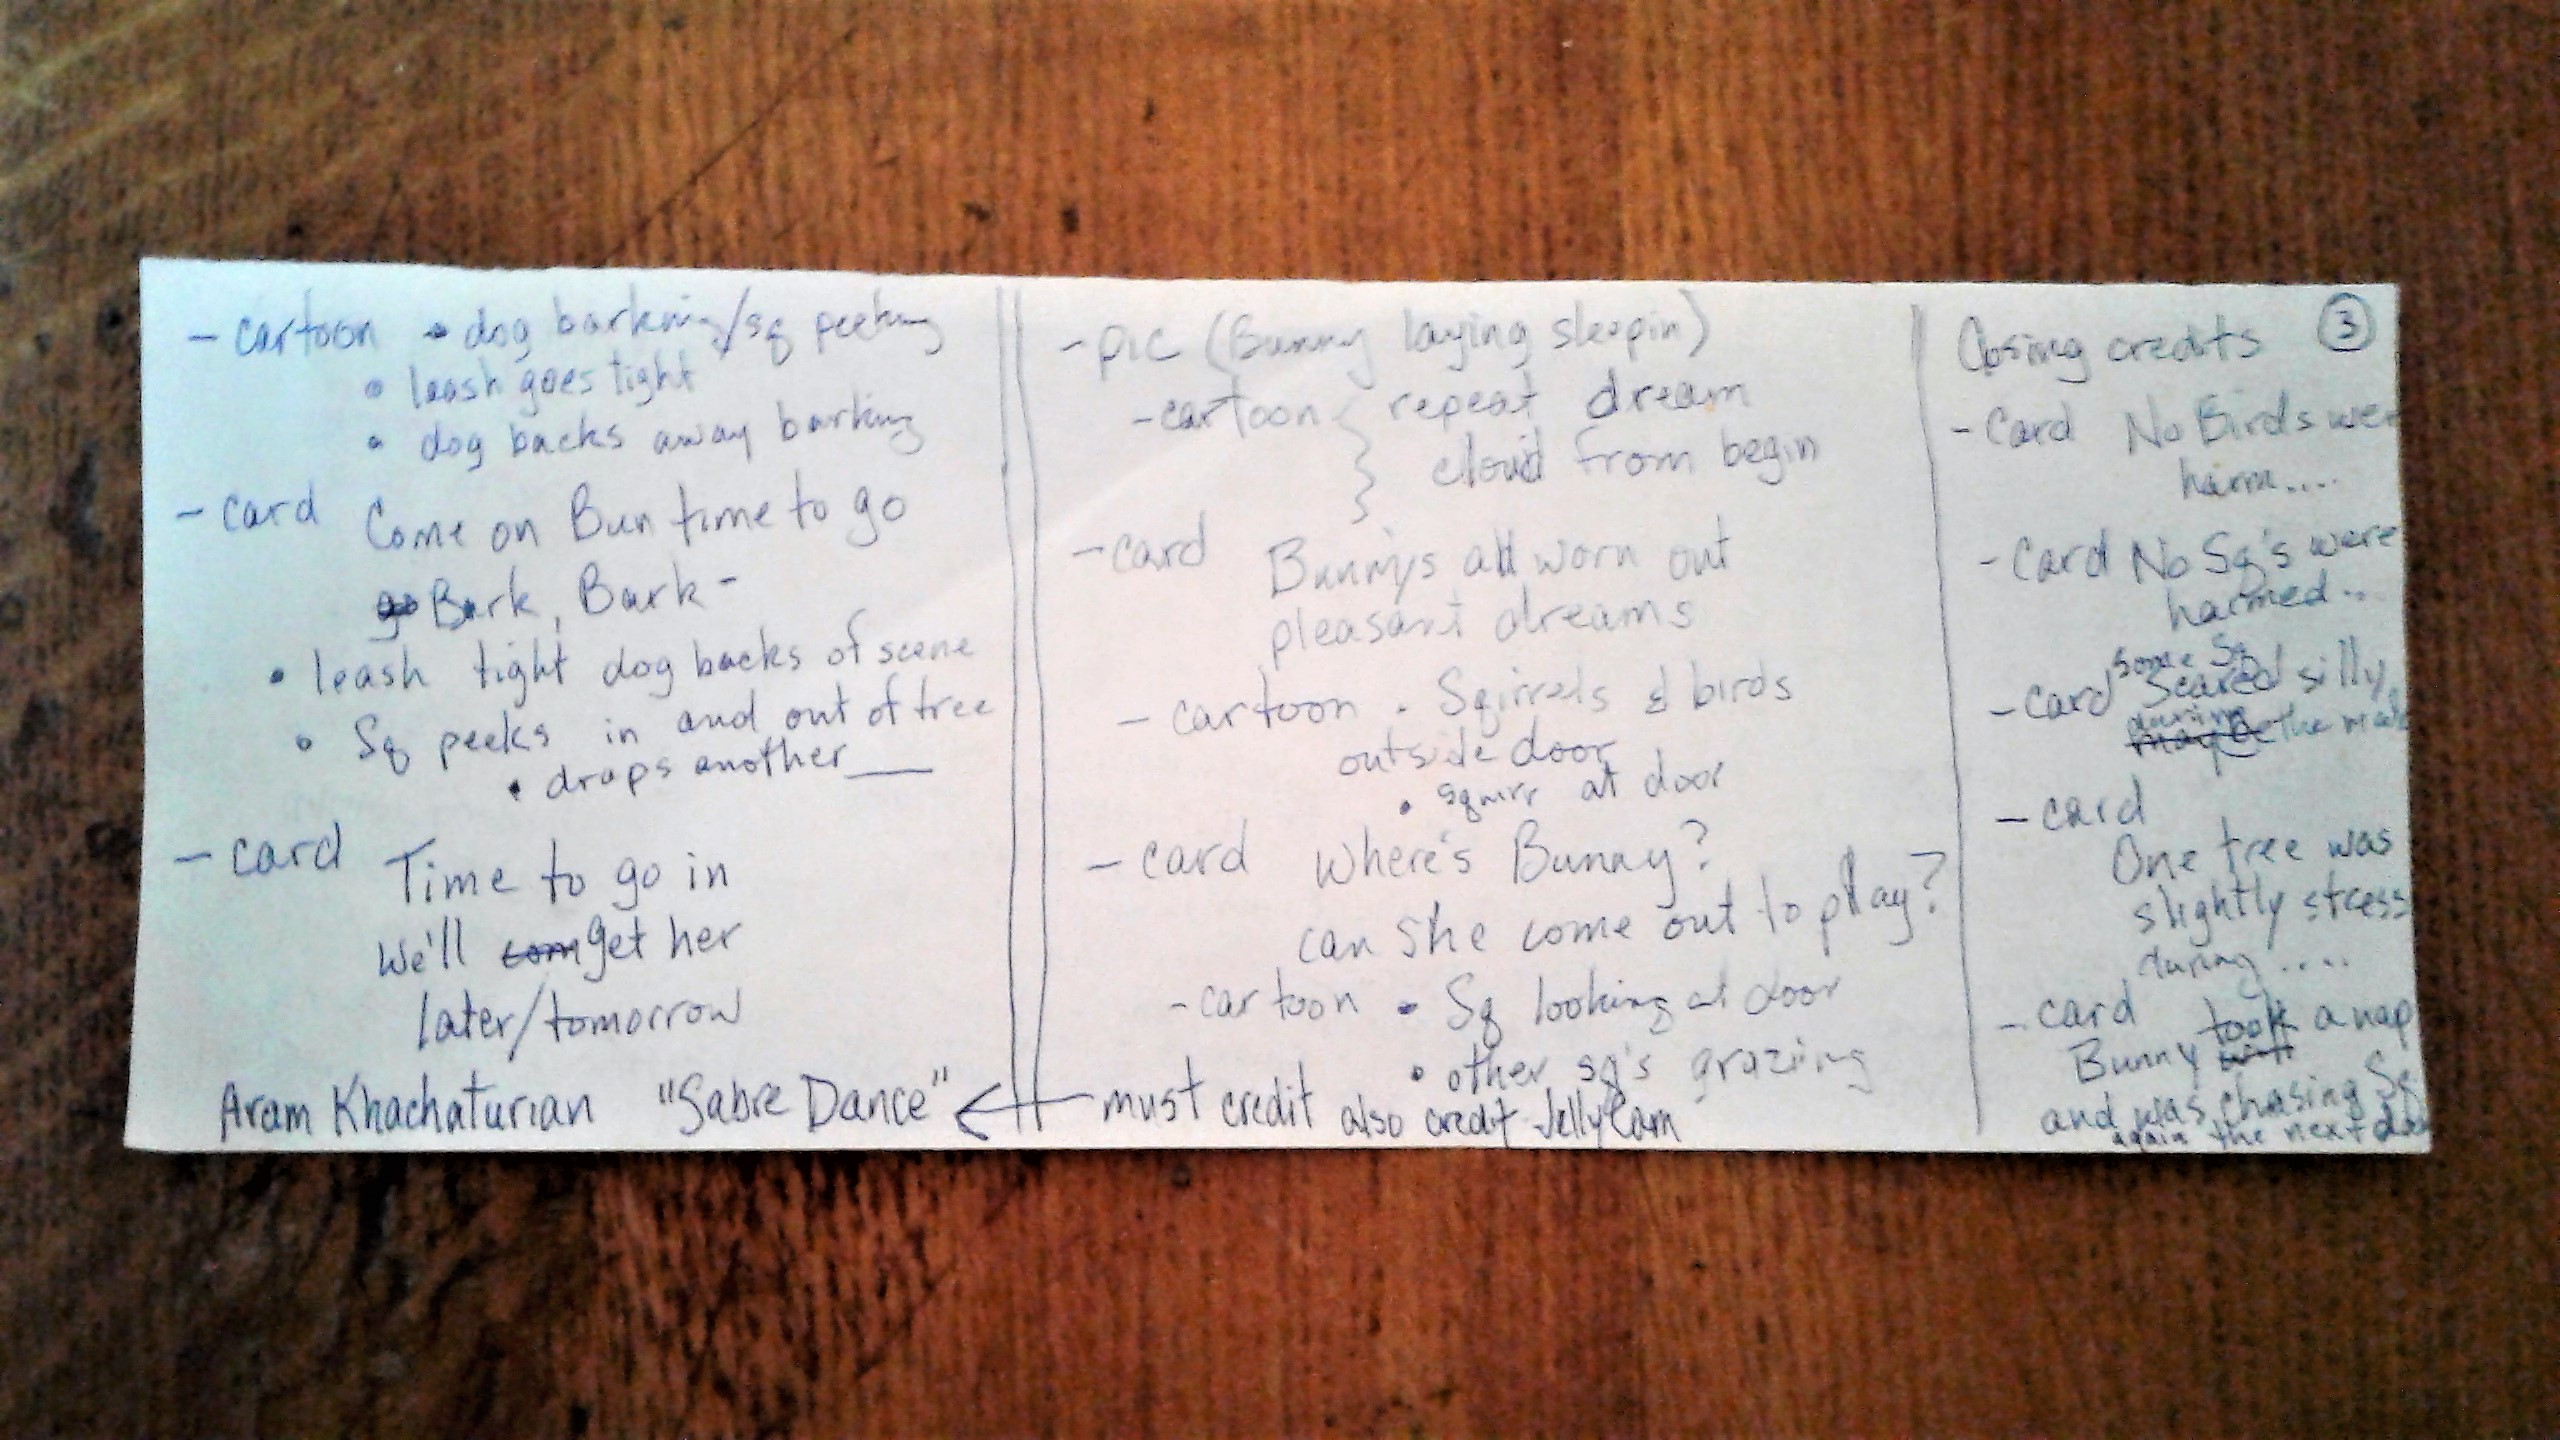 - cartoon • dog barking/sq peeking
• leash goes tight
• dog backs away barking
- card Come on Bun time to go
go Bark, Bark -
• leash tight dog backs of scene
• Sq peeks in and out of tree
• drops another ___
- card Time to go in
We'll com get her
later/tomorrow
Aram Khachaturian "Sabre Dance"
- pic (Bunny laying sleepin)
- cartoon { repeat dream
cloud from begin
- card Bunnys all worn out
pleasant dreams
- cartoon . Sqirrels & birds
outside door
• squirr at door
- card Where's Bunny?
can she come out to play?
- cartoon • Sq looking at door
• other sq's grazing
must credit also credit
Closing credits ③
- Card No Birds wer
harm....
- Card No Sq's were
harmed...
some Sq
- card Scared silly
during
maybe the
- card
One tree was
slightly stress
during ....
- card took a nap
Bunny
and was chasing Sq
again the next